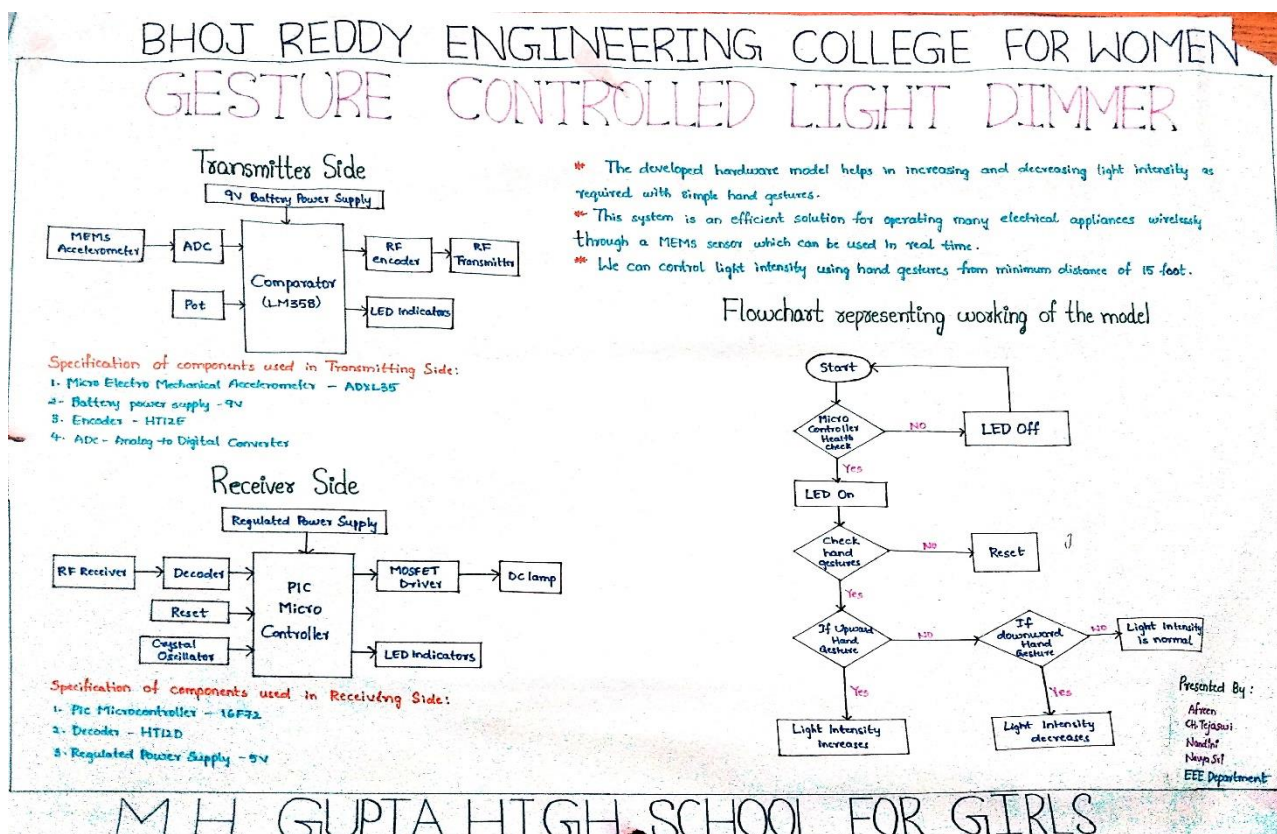 BHOJ REDDY ENGINEERING COLLEGE FOR WOMEN
GESTURE CONTROLLED LIGHT DIMMER
Transmitter Side
9V Battery Power Supply
MEMS
Accelerometer
ADC
Pot
Comparator
(LM358)
RF
encoder
RF
Transmitter
LED Indicators
Specification of components used in Transmitting Side:
1. Micro Electro Mechanical Accelerometer - ADXL35
2- Battery power supply - 9V
3. Encoder - HT12E
4. ADC - Analog to Digital Converter
Receiver Side
Regulated Power Supply
RF Receiver
Decoder
Reset
Crystal
Oscillator
PIC
Micro
Controller
MOSFET
Driver
DC lamp
LED Indicators
Specification of components used in Receiving Side:
1. Pic Microcontroller - 16F72
2. Decoder - HT12D
3. Regulated Power Supply - 5V
* The developed hardware model helps in increasing and decreasing light intensity as
required with simple hand gestures.
* This system is an efficient solution for operating many electrical appliances wirelessly
through a MEMS sensor which can be used in real time.
* We can control light intensity using hand gestures from minimum distance of 15 foot.
Flowchart representing working of the model
Start
Micro
Controller
Health
Check
NO
LED Off
Yes
LED On
Check
hand
gestures
NO
Reset
Yes
If Upward
Hand
Gesture
NO
If
downward
Hand
Gesture
NO
Light Intensity
is normal
Yes
Light Intensity
increases
Yes
Light Intensity
decreases
Presented By :
Afreen
CH. Tejaswi
Nandini
Navya Sri
EEE Department
M H GUPTA HIGH SCHOOL FOR GIRLS